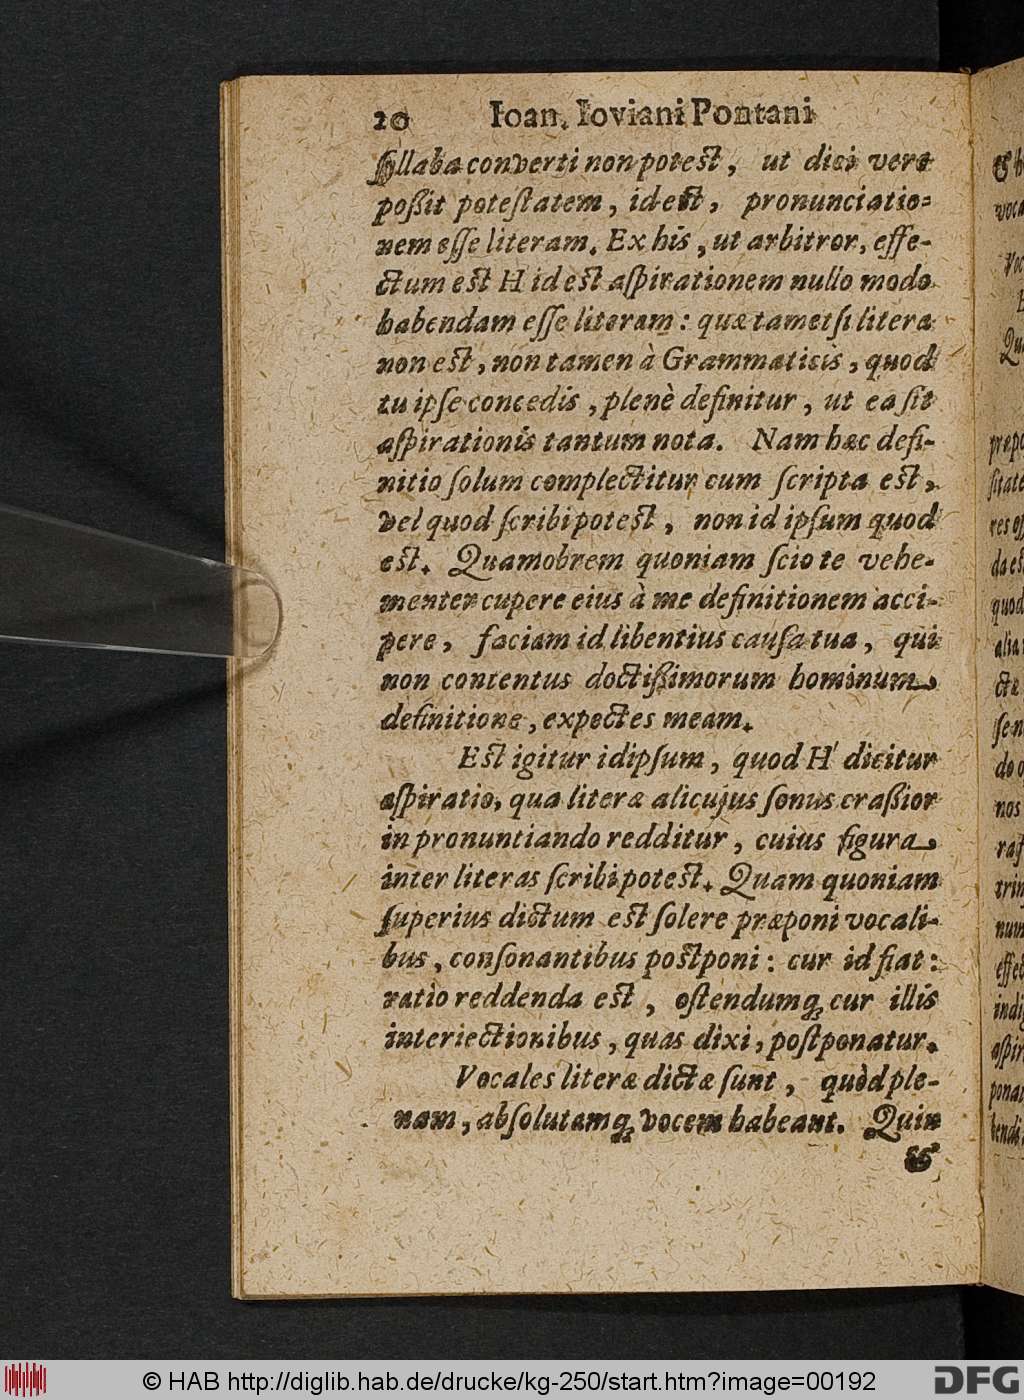 20 Ioan. Ioviani Pontani
ſyllaba converti non poteſt, ut dici vere
poßit poteſtatem, id eſt, pronunciatio-
nem eſſe literam. Ex his, ut arbitror, effe-
ctum eſt H id eſt aſpirationem nullo modo
habendam eſſe literam: quæ tametſi litera
non eſt, non tamen à Grammaticis, quod
tu ipſe concedis, plenè definitur, ut ea ſit
aſpirationis tantum nota. Nam hæc defi-
nitio ſolum complectitur cum ſcripta eſt,
vel quod ſcribi poteſt, non id ipſum quod
eſt. Quamobrem quoniam ſcio te vehe-
menter cupere eius à me definitionem acci-
pere, faciam id libentius cauſa tua, qui
non contentus doctißimorum hominum
definitione, expectes meam.
Eſt igitur id ipſum, quod H dicitur
aſpiratio, qua literæ alicujus ſonus craßior
in pronuntiando redditur, cuius figura
inter literas ſcribi poteſt. Quam quoniam
ſuperius dictum eſt ſolere præponi vocali-
bus, conſonantibus poſtponi: cur id fiat:
ratio reddenda eſt, oſtendumq; cur illis
interiectionibus, quas dixi, poſtponatur.
Vocales literæ dictæ ſunt, quòd ple-
nam, abſolutamq; vocem habeant. Quin
&
© HAB http://diglib.hab.de/drucke/kg-250/start.htm?image=00192
DFG